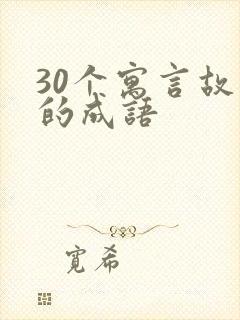 30个寓言故
的成語
寬希